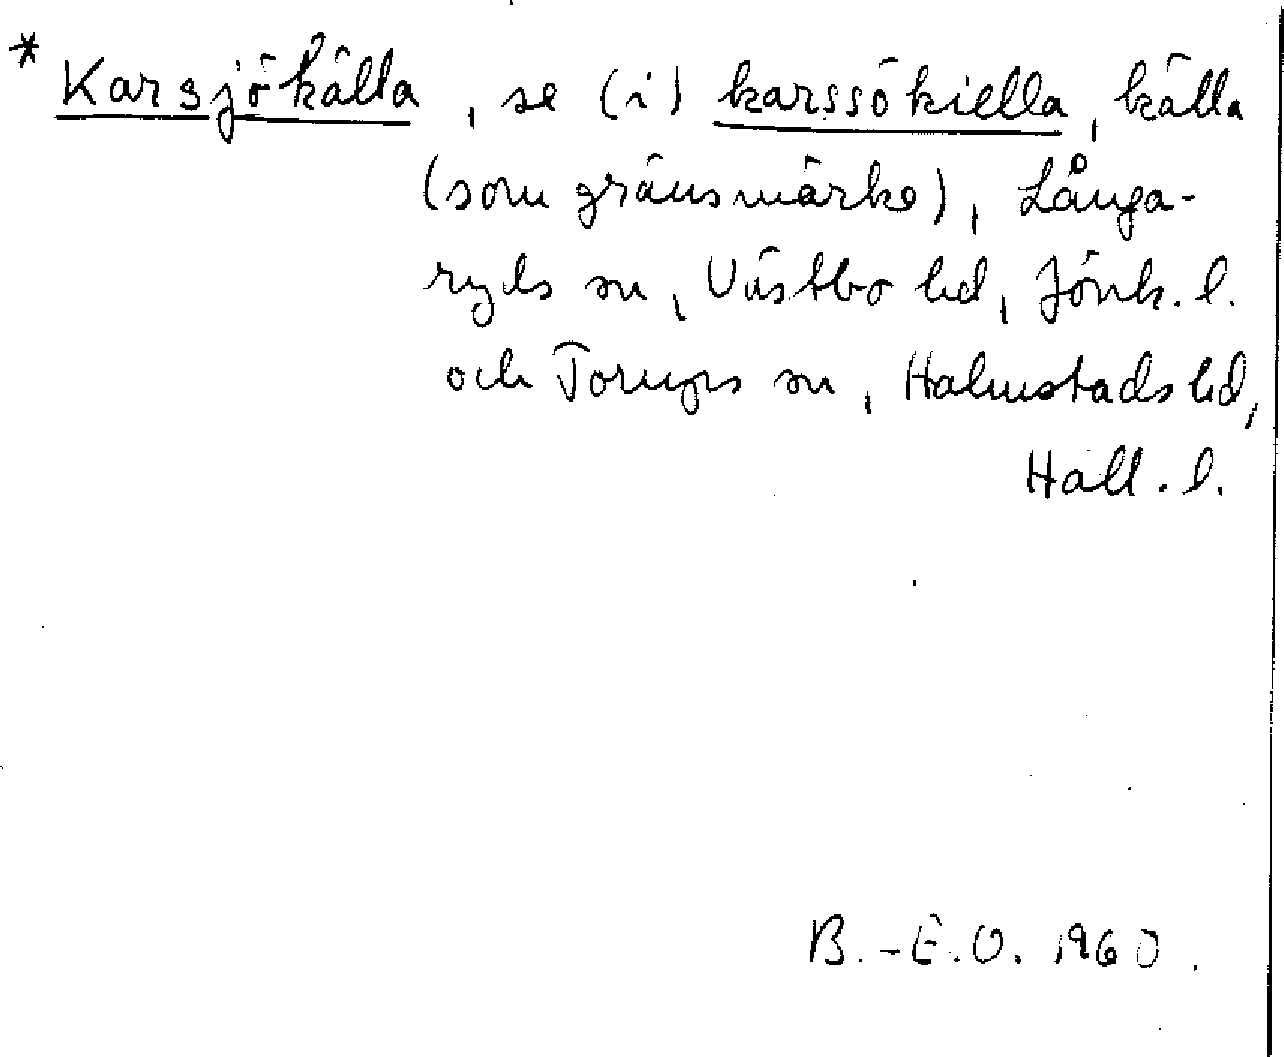 * Karsjökälla, se (i) karssökiella, källa
(som gränsmärke), Långa-
ryds sn, Västbo hd, Jönk. l.
och Torups sn, Halmstads hd,
Hall. l.
B.-E.O. 1960.